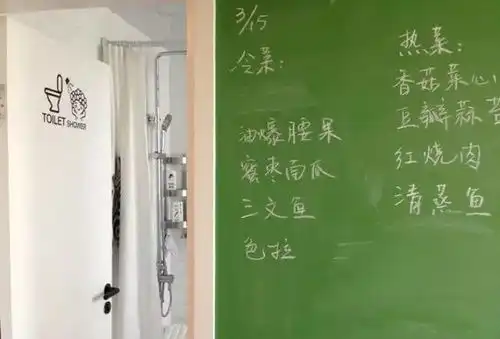 TOILET SHOWER
3/15
冷菜:
油爆腰果
蜜枣南瓜
三文鱼
色拉
热菜:
香菇菜心
豆瓣蒜苗
红烧肉
清蒸鱼